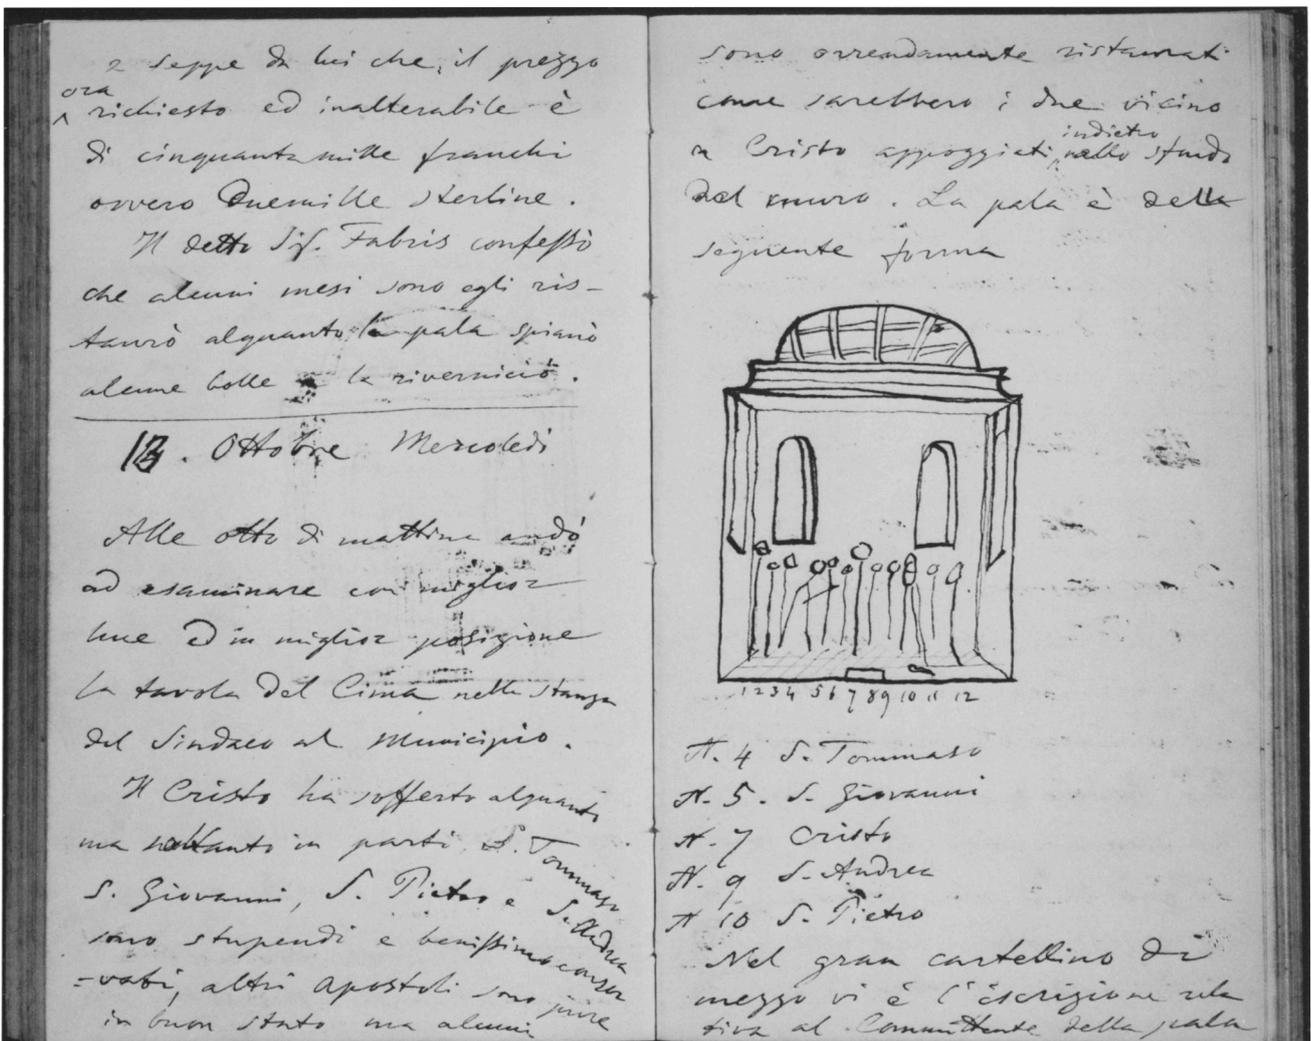 e seppe da lui che, il prezzo
ora
richiesto ed inalterabile è
di cinquantamille franchi
ovvero Duemille sterline.
Il detto Sig. Fabris confessò
che alcuni mesi sono egli ris-
taurò alquanto la pala spianò
alcune bolle e la riverniciò.
13. Ottobre Mercoledì
Alle otto di mattina andò
ad esaminare con miglior
luce ed in miglior posizione
la tavola del Cima nella stanza
del Sindaco al Municipio.
Il Cristo ha sofferto alquanto
ma soltanto in parti. S. Tommaso
S. Giovanni, S. Pietro e S. Andrea
sono stupendi e benissimo conser
=vati, altri apostoli sono pure
in buon stato ma alcuni
sono orrendamente ristaurati
come sarebbero i due vicino
indietro
a Cristo appoggiati nello sfondo
del muro. La pala è della
seguente forma
1 2 3 4 5 6 7 8 9 10 11 12
N. 4 S. Tommaso
N. 5. S. Giovanni
N. 7 Cristo
N. 9 S. Andrea
N 10 S. Pietro
Nel gran cartellino di
mezzo vi è l'iscrizione rela
tiva al Committente della pala